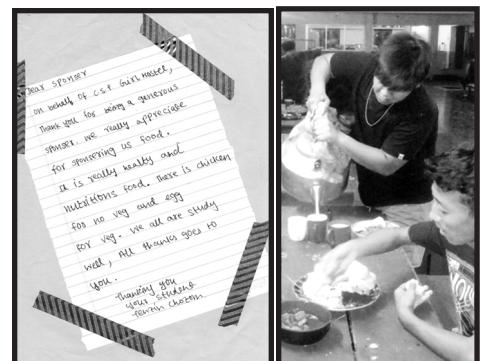 Dear sponser
on behalf of C.S.P Girl Hostel,
Thank you for being a generous
sponser. we really appreciate
for sponsering us food.
it is really healthy and
nutritions food. There is chicken
foo no veg and egg
for veg. we all are study
well, All thanks goes to
you.
Thanking you
your student
Tenzin Chozom